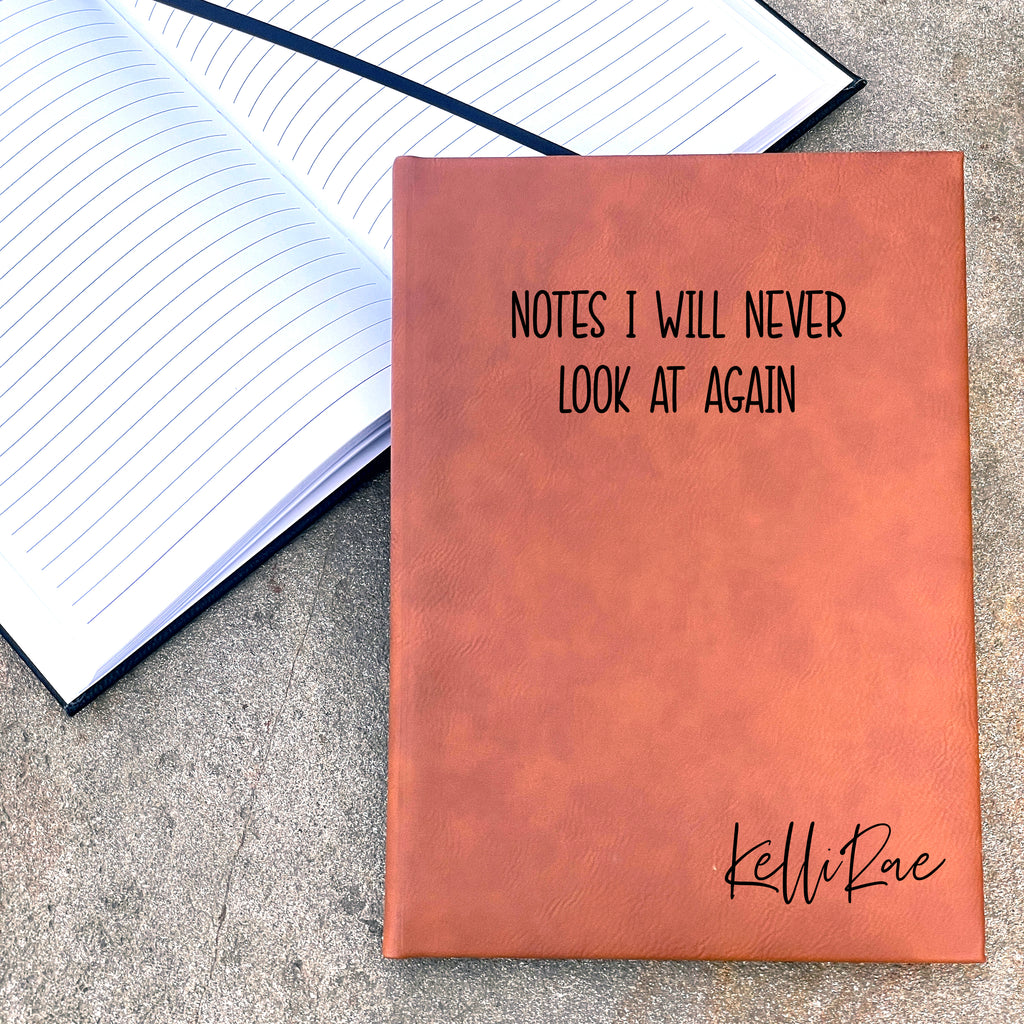 NOTES I WILL NEVER
LOOK AT AGAIN
KelliRae